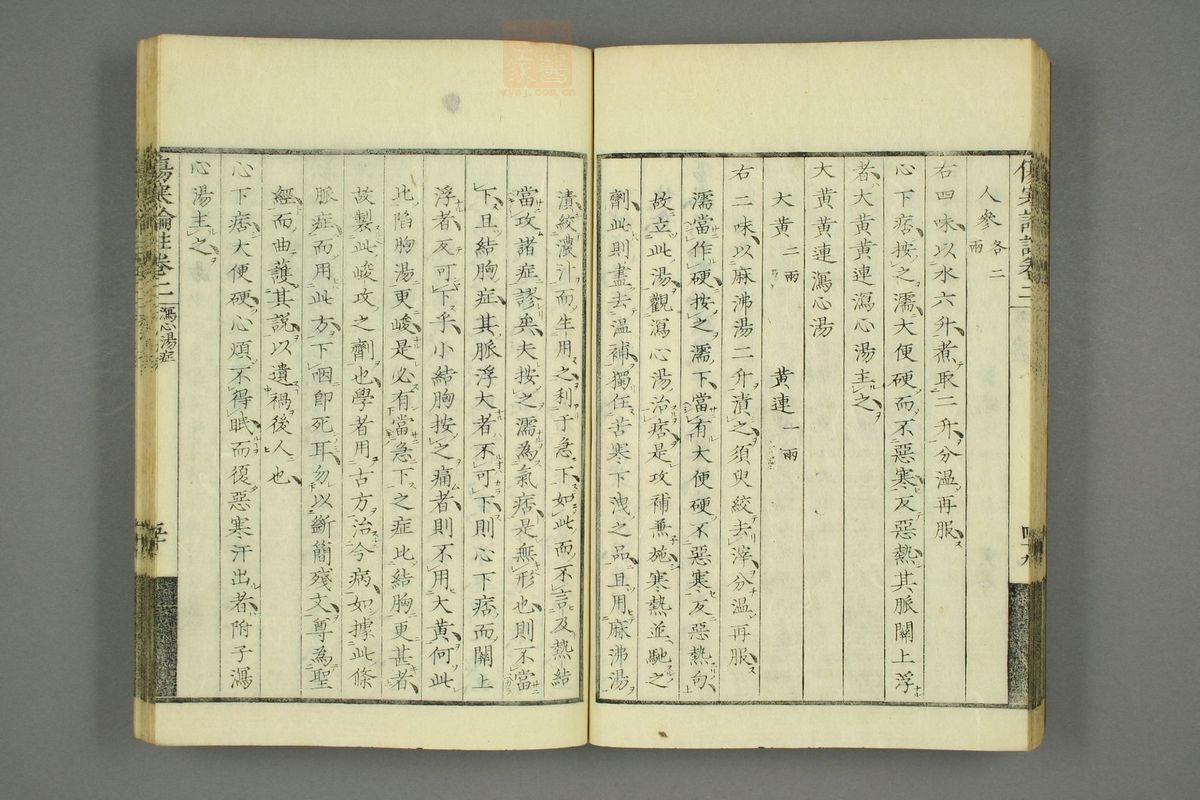 傷寒論註卷二
四九
人參各二兩
右四味以水六升煮取二升分溫再服
心下痞按之濡大便硬而不惡寒反惡熱其脈關上浮
者大黃黃連瀉心湯主之
大黃黃連瀉心湯
大黃二兩 黃連一兩
右二味以麻沸湯二升漬之須臾絞去滓分溫再服
濡當作硬按之濡下當有大便硬不惡寒反惡熱句
故立此湯觀瀉心湯治痞是攻補兼施寒熱並馳之
劑此則盡去溫補獨任苦寒下洩之品且用麻沸湯
漬絞濃汁而生用之利于急下如此而不言及熱結
當攻諸症謬矣夫按之濡為氣痞是無形也則不當
下且結胸症其脈浮大者不可下則心下痞而關上
浮者反可下乎小結胸按之痛者則不用大黃何此
比陷胸湯更峻是必有當急下之症比結胸更甚者
故製此峻攻之劑也學者用古方治今病如據此條
脈症而用此方下咽即死耳勿以斷簡殘文尊為聖
經而曲護其說以遺禍後人也
心下痞大便硬心煩不得眠而復惡寒汗出者附子瀉
心湯主之
傷寒論註卷二
瀉心湯症
五十